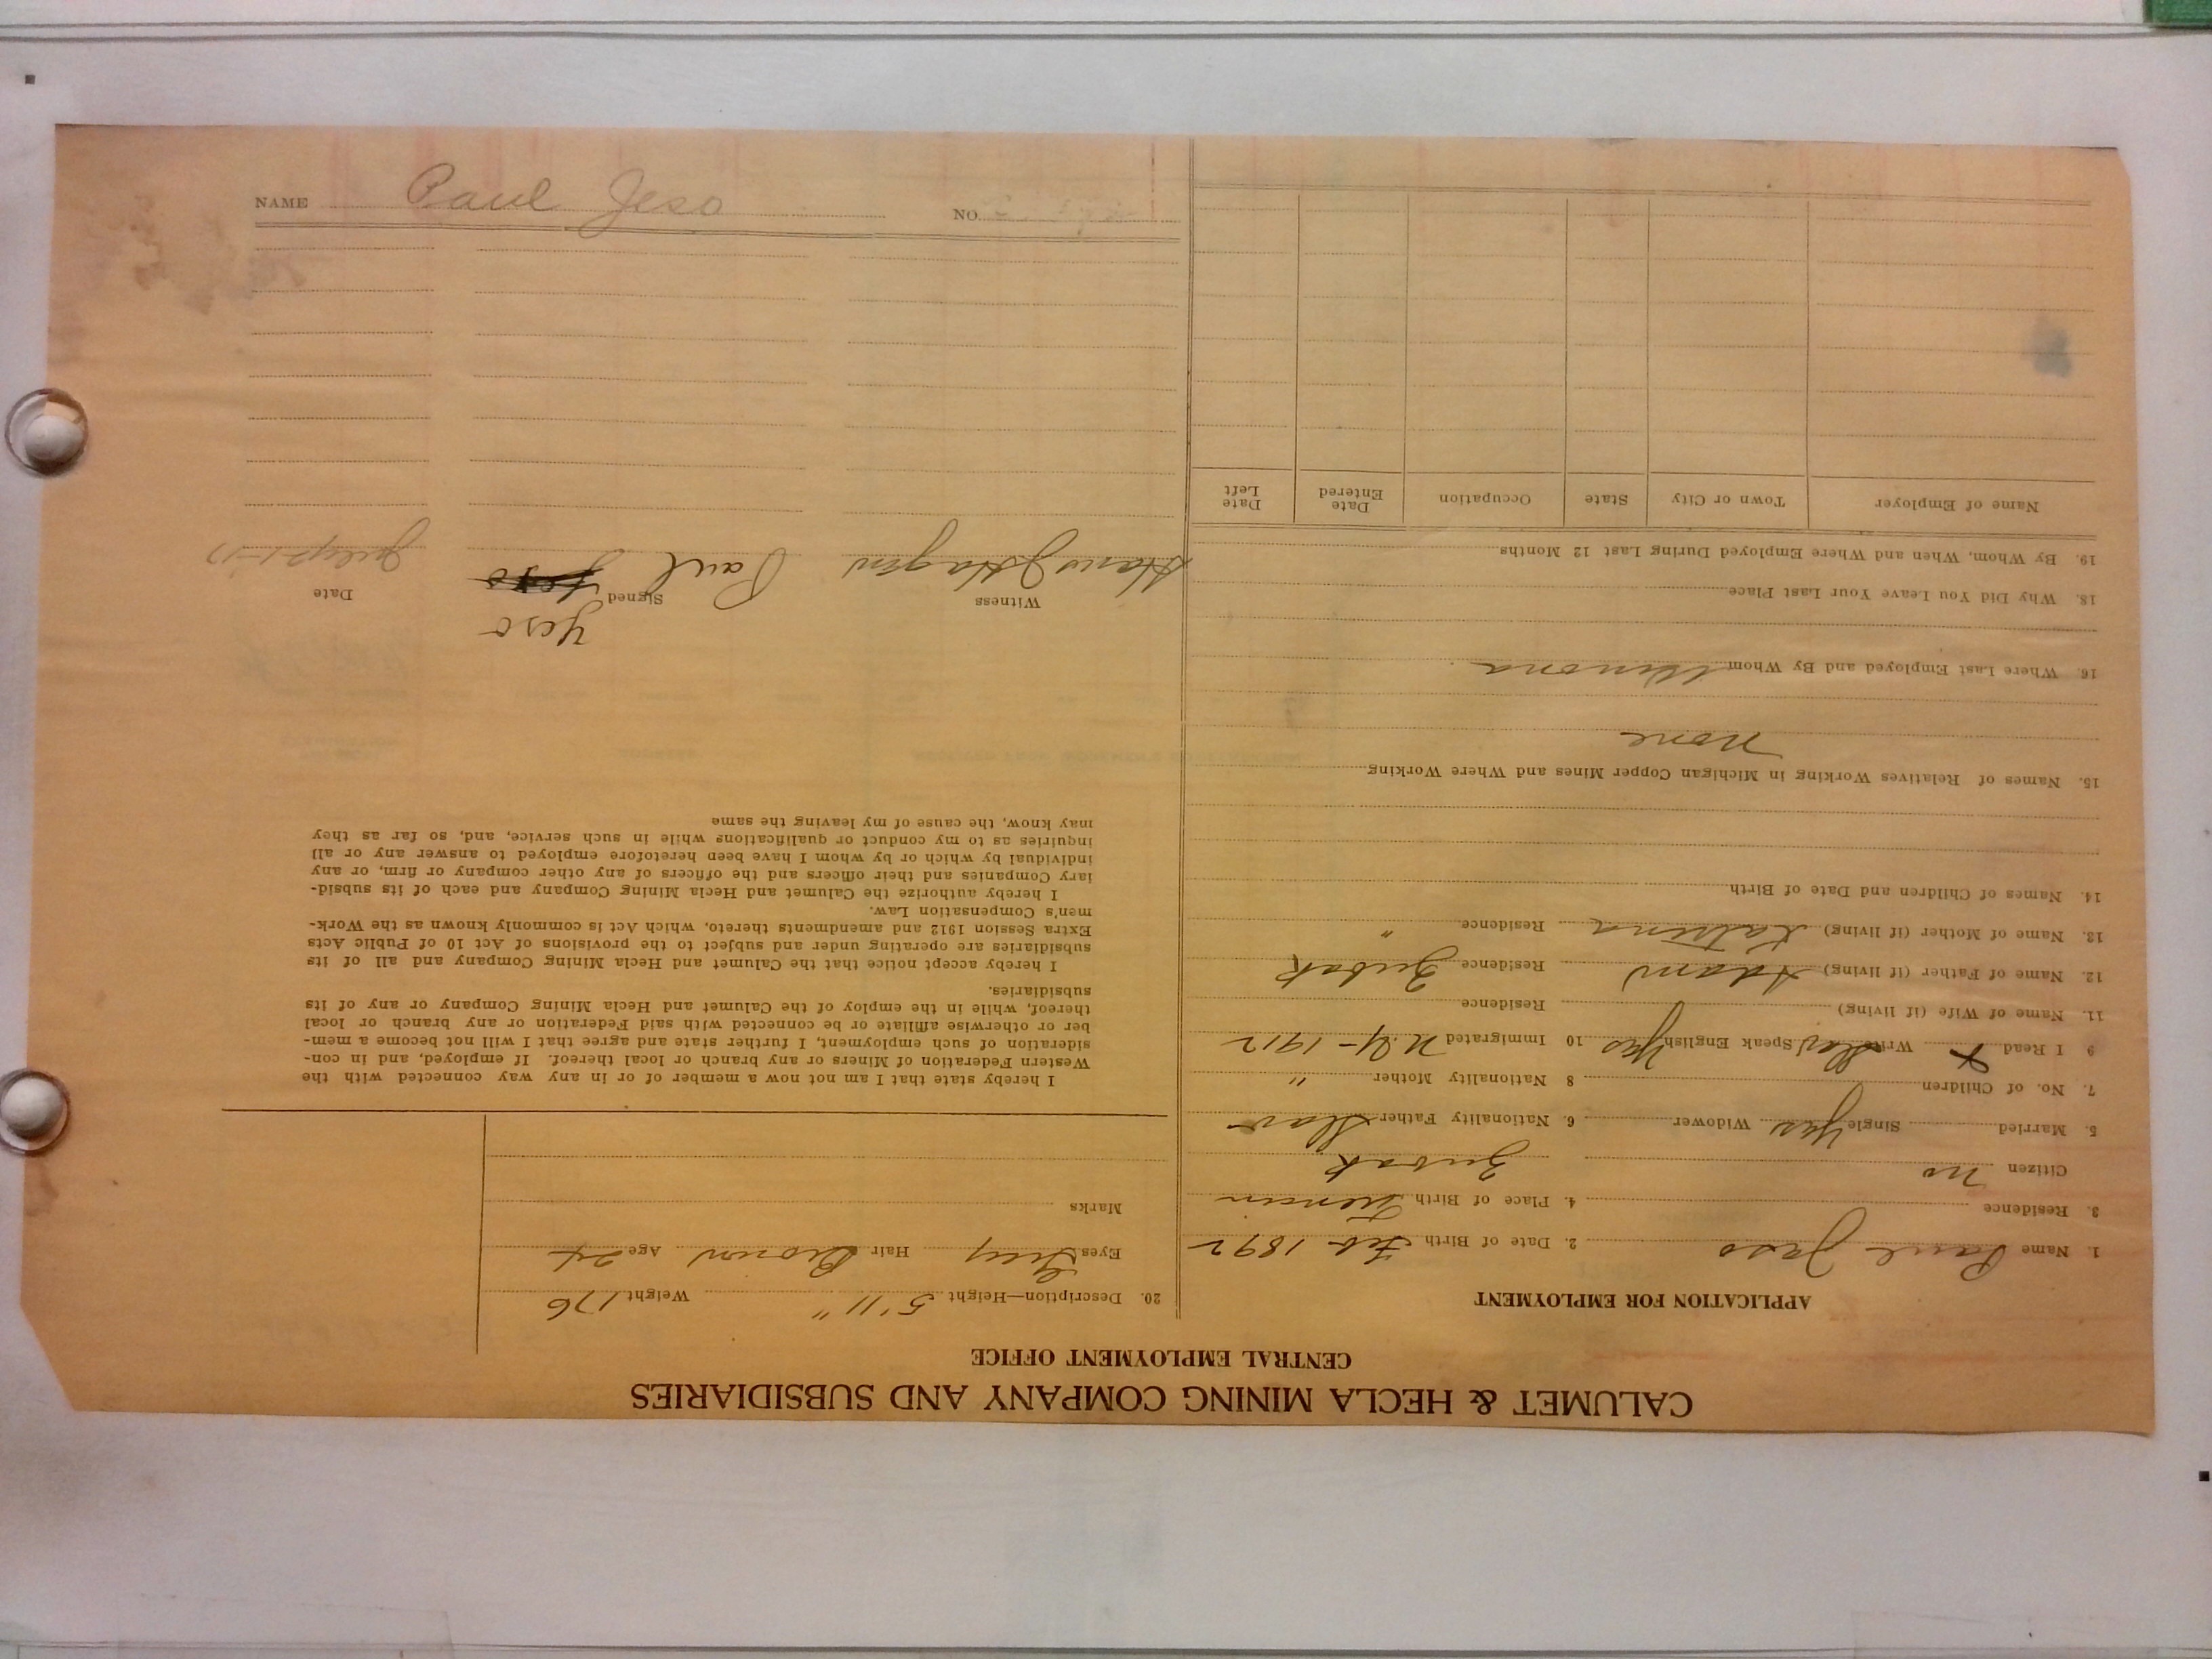 CALUMET & HECLA MINING COMPANY AND SUBSIDIARIES
CENTRAL EMPLOYMENT OFFICE
APPLICATION FOR EMPLOYMENT
1. Name Paul Jeso 2. Date of Birth Feb 1892
3. Residence 4. Place of Birth
Citizen no
5. Married Single Yes Widower 6. Nationality Father Slav
7. No. of Children 8 Nationality Mother "
9 I Read X Write Slav Speak English Yes 10 Immigrated N.Y- 1912
11. Name of Wife (if living) Residence
12. Name of Father (if living) Adam Residence
13. Name of Mother (if living) Katrina Residence "
14. Names of Children and Date of Birth
15. Names of Relatives Working in Michigan Copper Mines and Where Working
None
16. Where Last Employed and By Whom
18. Why Did You Leave Your Last Place
19. By Whom, When and Where Employed During Last 12 Months
Name of Employer Town or City State Occupation Date Entered Date Left
20. Description—Height 5'11" Weight 176
Eyes Grey Hair Brown Age 24
Marks
I hereby state that I am not now a member of or in any way connected with the
Western Federation of Miners or any branch or local thereof. If employed, and in con-
sideration of such employment, I further state and agree that I will not become a mem-
ber or otherwise affiliate or be connected with said Federation or any branch or local
thereof, while in the employ of the Calumet and Hecla Mining Company or any of its
subsidiaries.
I hereby accept notice that the Calumet and Hecla Mining Company and all of its
subsidiaries are operating under and subject to the provisions of Act 10 of Public Acts
Extra Session 1912 and amendments thereto, which Act is commonly known as the Work-
men's Compensation Law.
I hereby authorize the Calumet and Hecla Mining Company and each of its subsid-
iary Companies and their officers and the officers of any other company or firm, or any
individual by which or by whom I have been heretofore employed to answer any or all
inquiries as to my conduct or qualifications while in such service, and, so far as they
may know, the cause of my leaving the same
Yeso
Witness Signed Date
Paul Jeso July 21-17
NAME Paul Jeso NO.